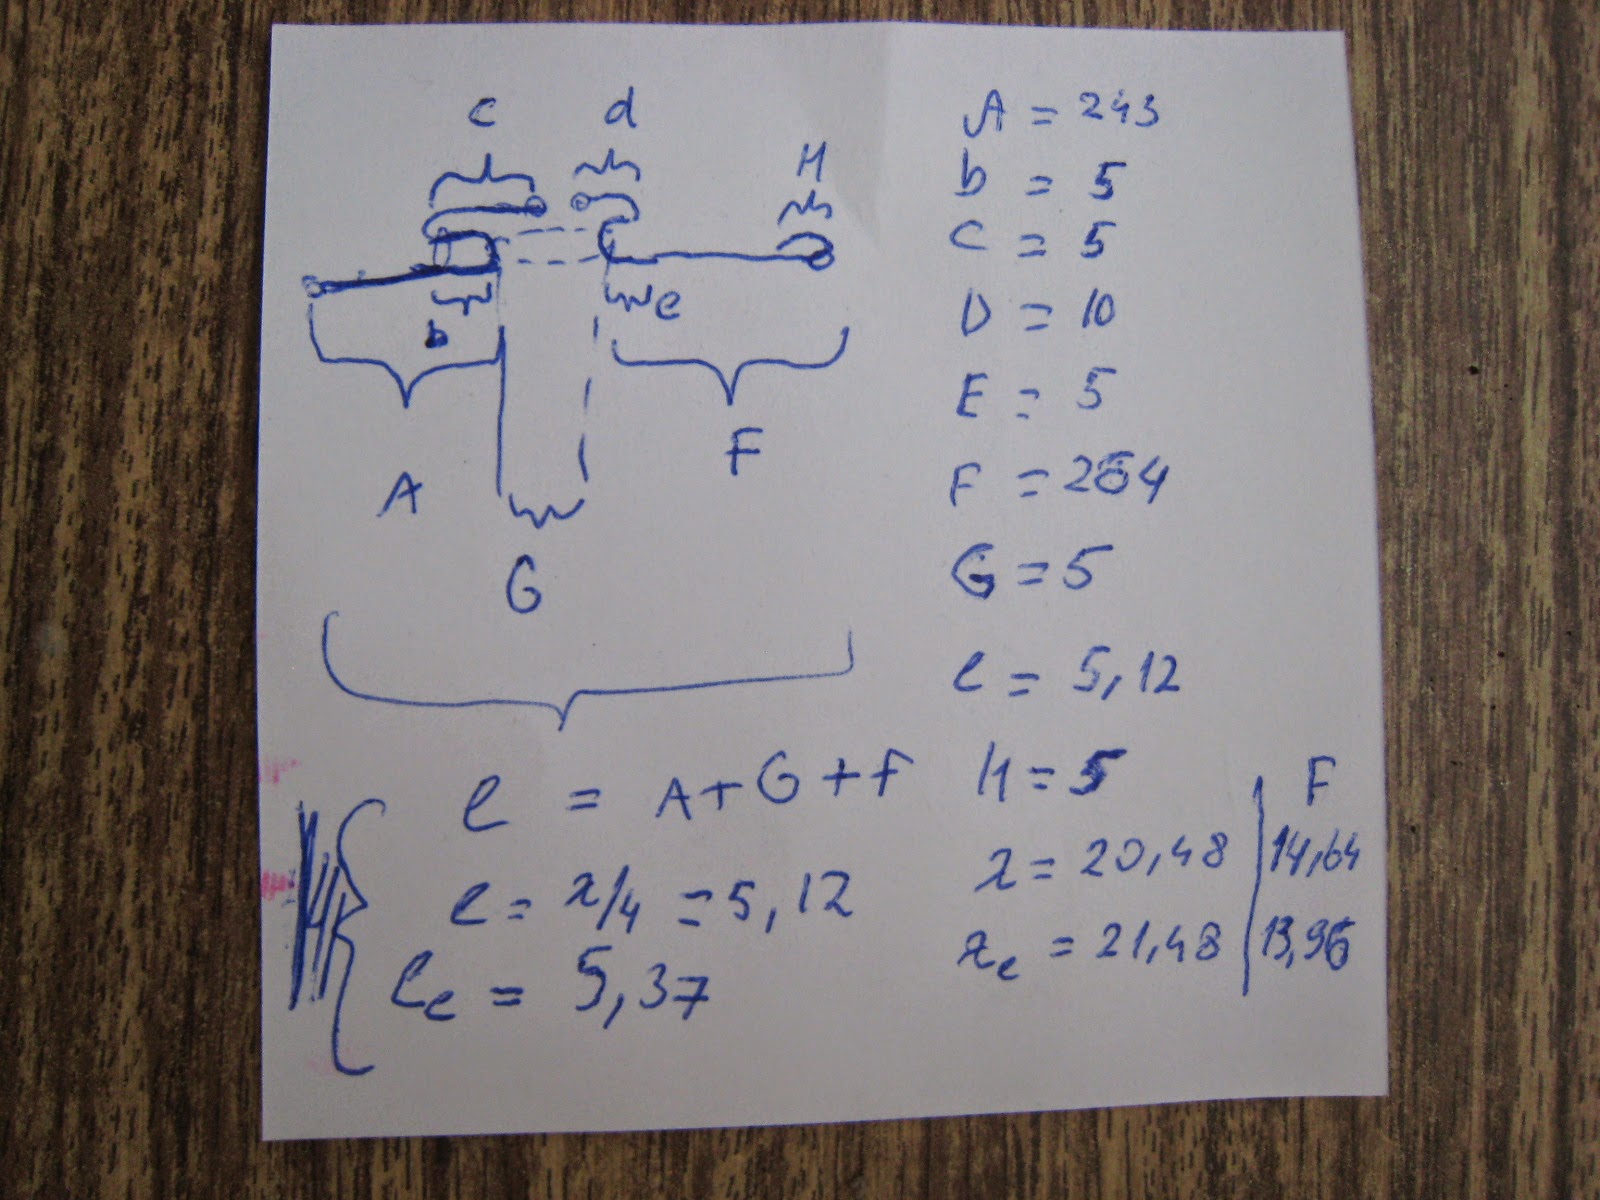 c d H
b e
A F
G
e = A+G+F
e = λ/4 = 5,12
ee = 5,37
A = 243
b = 5
C = 5
D = 10
E = 5
F = 264
G = 5
e = 5,12
H = 5 F
λ = 20,48 14,64
λe = 21,48 13,96